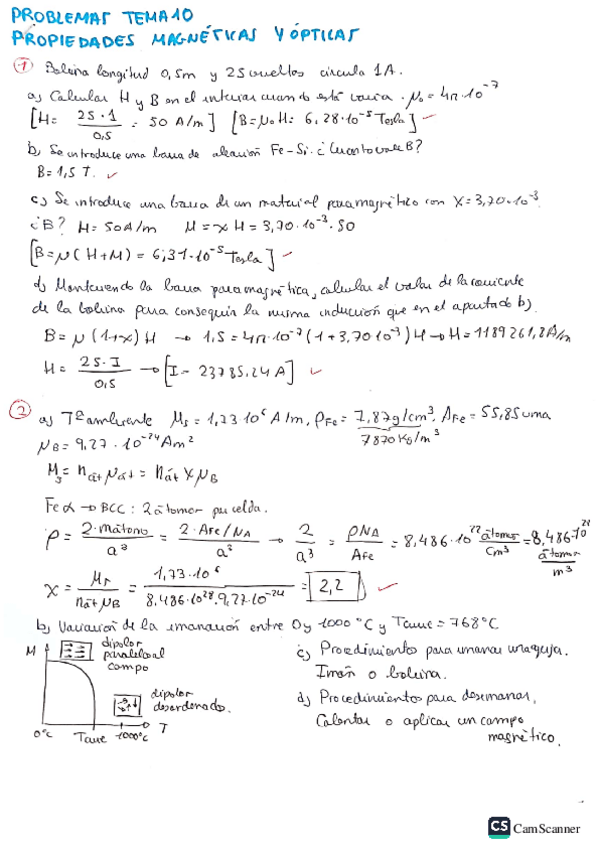 PROBLEMAS TEMA 10
PROPIEDADES MAGNÉTICAS Y ÓPTICAS
① Bobina longitud 0,5m y 25 vueltas circula 1A.
a) Calcular H y B en el interior cuando está vacía. μ₀ = 4π·10⁻⁷
[H = 25·1 / 0,5 = 50 A/m] [B = μ₀·H = 6,28·10⁻⁵ Tesla]
b) Se introduce una barra de aleación Fe-Si. ¿Cuanto vale B?
B = 1,5 T.
c) Se introduce una barra de un material paramagnético con X = 3,70·10⁻³.
¿B? H = 50A/m M = x H = 3,70·10⁻³·50
[B = μ(H+M) = 6,31·10⁻⁵ Tesla]
d) Manteniendo la barra paramagnética, calcular el valor de la corriente
de la bobina para conseguir la misma inducción que en el apartado b).
B = μ (1+x) H → 1,5 = 4π·10⁻⁷ (1 + 3,70·10⁻³) H → H = 1189261,8 A/m
H = 25·I / 0,5 → [I = 23785,24 A]
② a) Tª ambiente Ms = 1,73·10⁶ A/m, ρFe = 7,87g/cm³, AFe = 55,85 uma
7870 Kg/m³
μB = 9,27·10⁻²⁴ Am²
Ms = nát μát = nát X μB
Fe α → BCC: 2 átomos por celda.
ρ = 2·mátomo / a³ = 2·AFe/NA / a³ → 2 / a³ = ρNA / AFe = 8,486·10²² átomos / cm³ = 8,486·10²⁸ átomos / m³
X = Ms / nát μB = 1,73·10⁶ / 8,486·10²⁸·9,27·10⁻²⁴ = 2,2
b) Variación de la imanación entre 0 y 1000 °C y Tcurie = 768°C
M
dipolos
paralelos al
campo
dipolos
desordenados.
0°C Tcurie 1000°C T
c) Procedimiento para imanar una aguja.
Imán o bobina.
d) Procedimientos para desimanar.
Calentar o aplicar un campo
magnético.
CS CamScanner